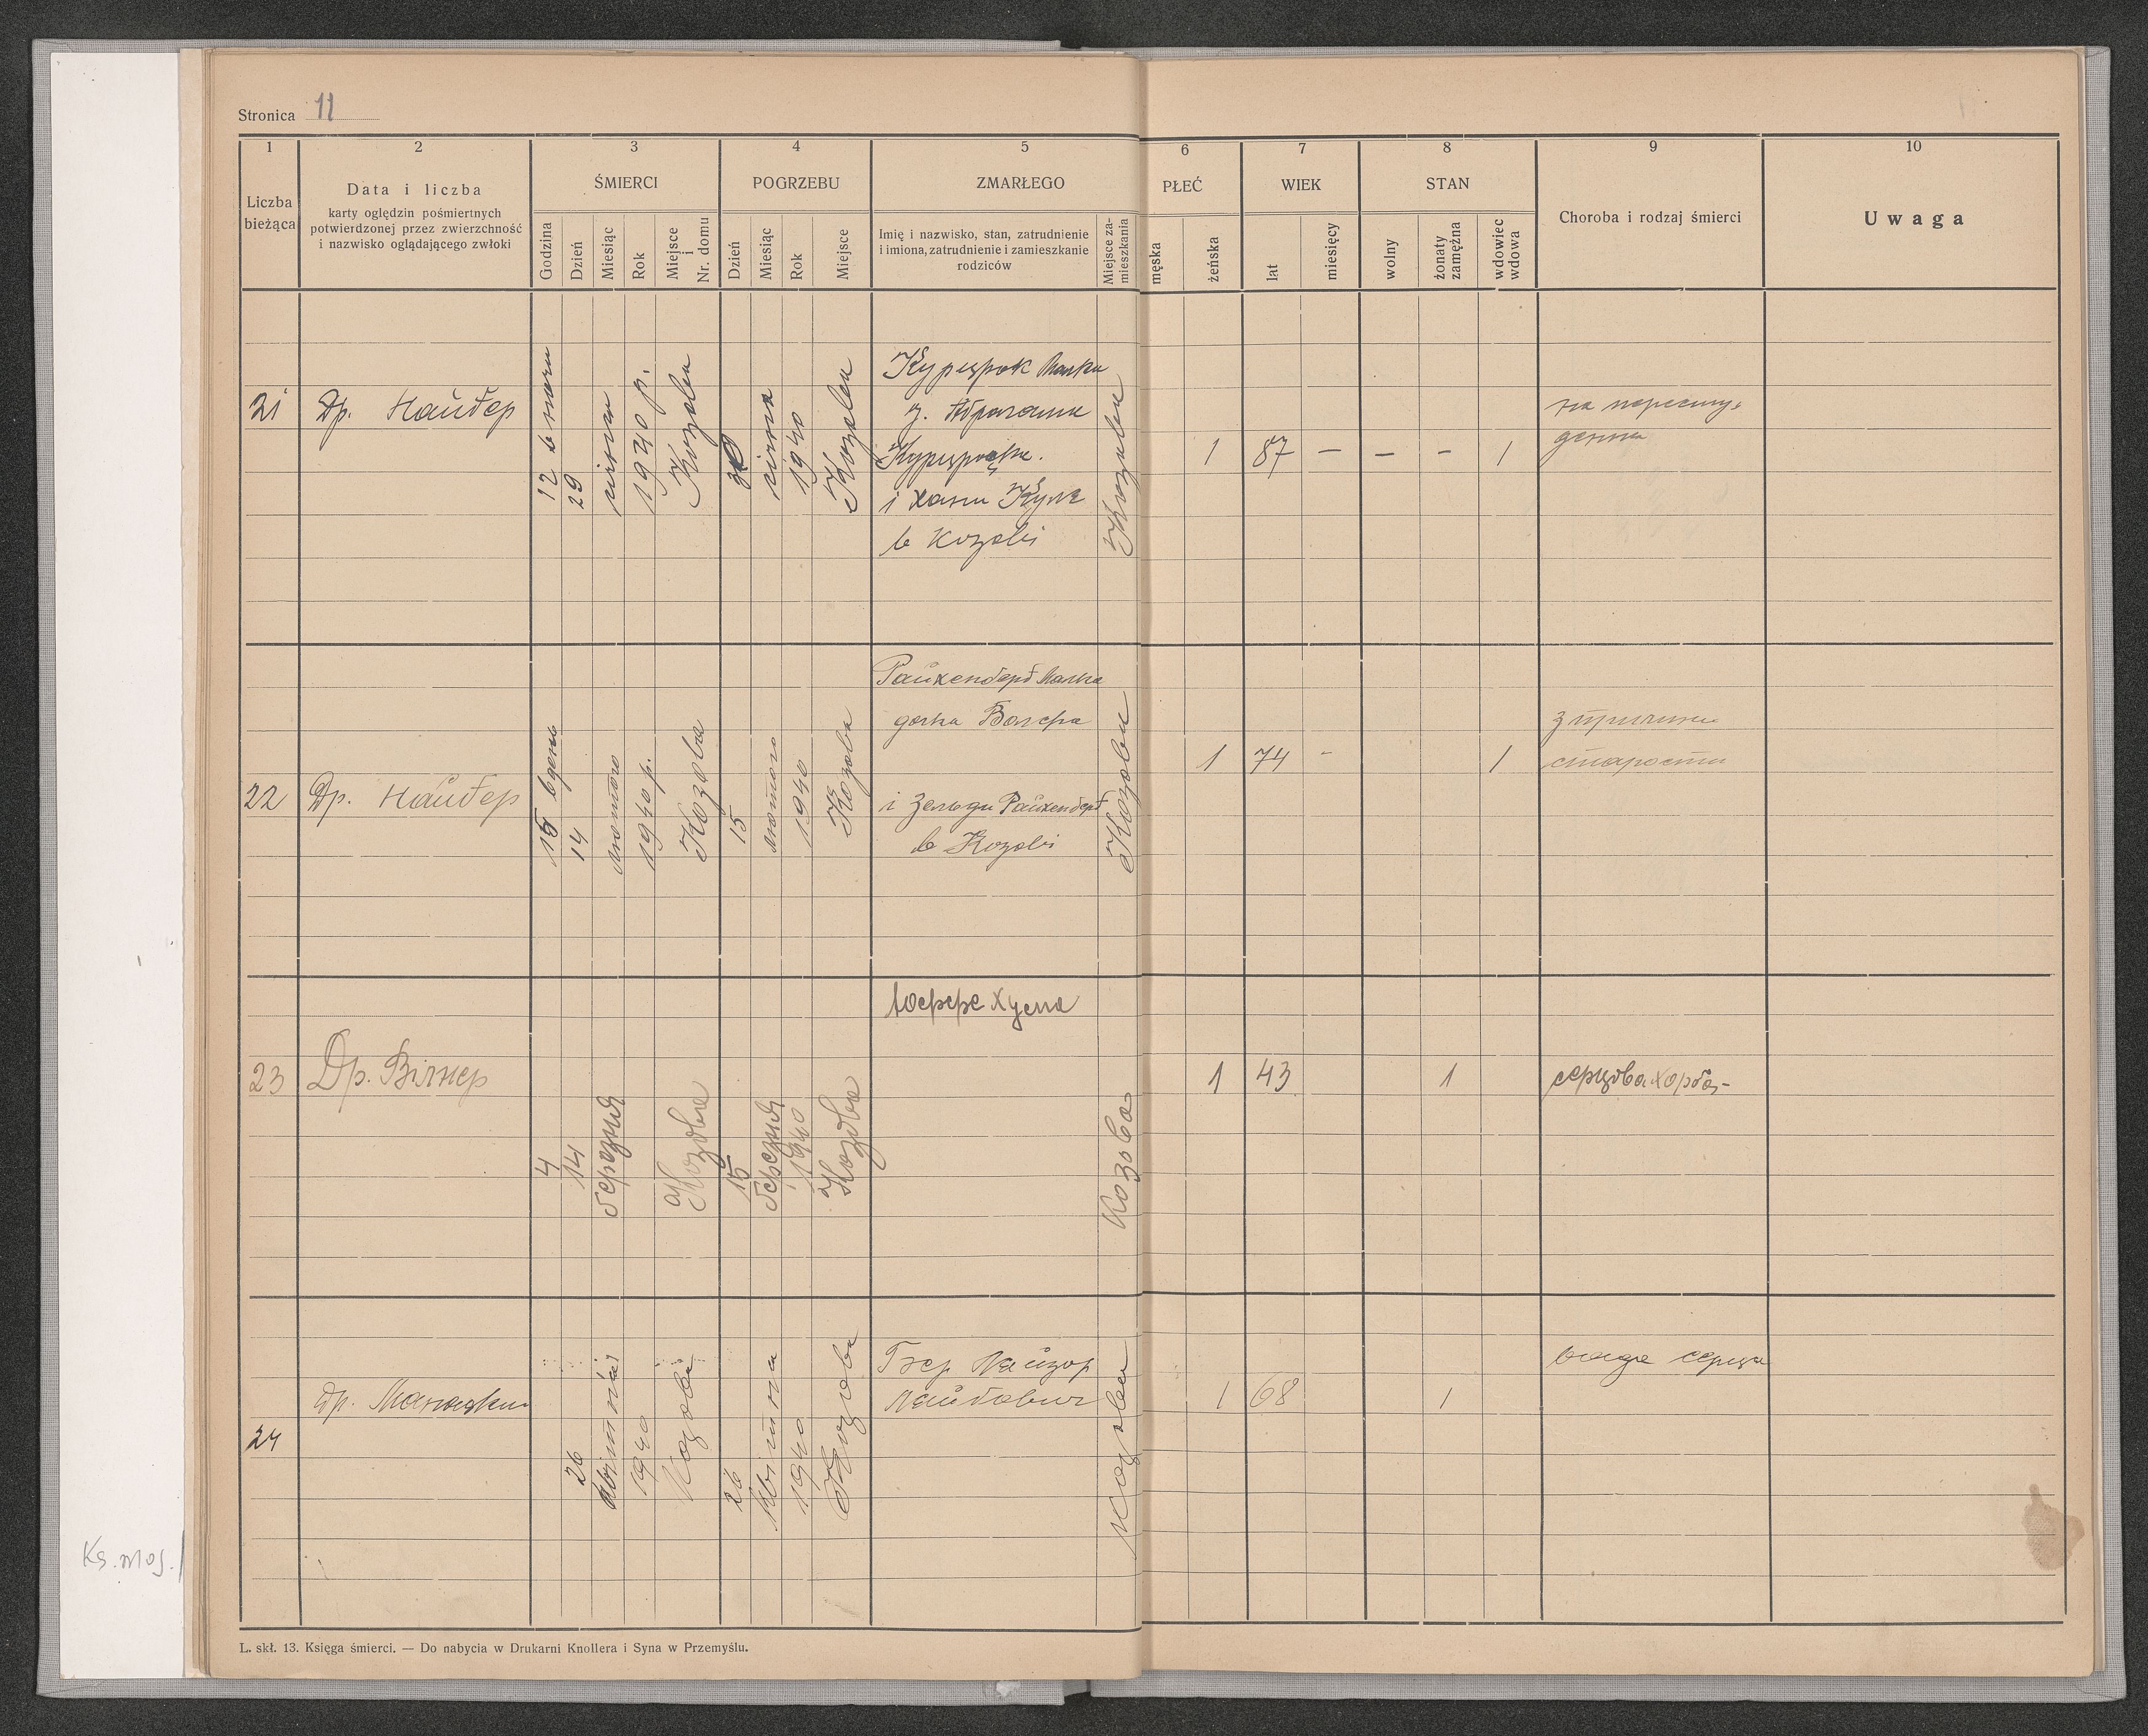 Stronica 11
1 2 3 4 5 6 7 8 9 10
Liczba bieżąca
Data i liczba
karty oględzin pośmiertnych
potwierdzonej przez zwierzchność
i nazwisko oglądającego zwłoki
ŚMIERCI
Godzina
Dzień
Miesiąc
Rok
Miejsce i Nr. domu
POGRZEBU
Dzień
Miesiąc
Rok
Miejsce
ZMARŁEGO
Imię i nazwisko, stan, zatrudnienie
i imiona, zatrudnienie i zamieszkanie
rodziców
Miejsce zamieszkania
PŁEĆ
męska
żeńska
WIEK
lat
miesięcy
STAN
wolny
żonaty zamężna
wdowiec wdowa
Choroba i rodzaj śmierci
Uwaga
21
Др. Найдер
12 в ночи
29
січня
1940 р.
Козова
30
січня
1940
Козова
і Хани
в Козові
Козова
1
87
– – –
1
22
Др. Найдер
15 в день
14
лютого
1940 р.
Козова
15
лютого
1940
Козова
донька
і Зельди
в Козові
Козова
1
74
-
1
з причини
старости
23
Др. Вілнер
4
14
березня
Козова
15
березня
1940
Козова
Козова
1
43
1
серцова хороба
24
Др.
26
квітня
1940
Козова
26
квітня
1940
Козова
Козова
1
68
1
вада серця
L. skł. 13. Księga śmierci. — Do nabycia w Drukarni Knollera i Syna w Przemyślu.
Ks. moj.